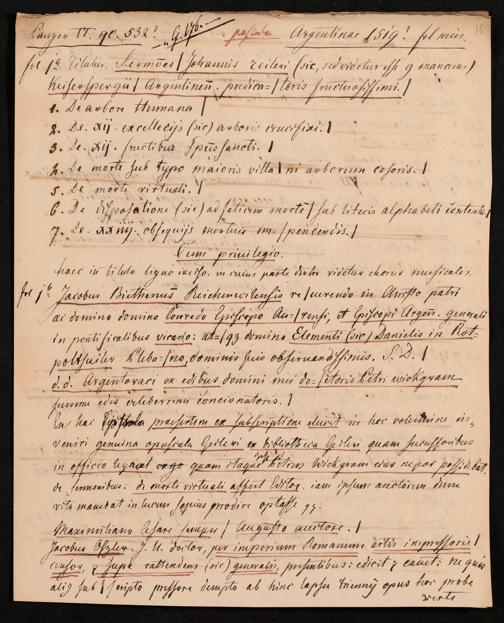 Panzer VI. 90. 532? G. 176. Argentinae (sig! fol. min.
fol 1a Titulus. Sermões / Johannis Zeileri (sic,
Keiserspergii / Argentineñ. predica=/toris fructuosissimi. /
1. De arbore Humana /
2. De. xij. excellecijs (sic) arboris crucifixi. /
3. De. xij. fructibus spūssancti. /
4. De morte sub typo maioris villa / in arborum cesoris. /
5. De morte virtuali. /
6. De dispositione (sic) ad felicem mortē / sub literis alphabeti contenta /
7. De. xxiiij. obsequijs mortuis im=/pendendis. /
Cum privilegio.
haec in titulo ligno inciso. in cuius parte videtur chorus musicalis.
fol 1b Jacobus Biethemius Reichenwilensis re/verendo in Christo patri
ac domino domino Conrado Episcopo Au=/rensi, et Episcopi Argeñ. generali
in pontificalibus vicario: at=/qz domino Clementi (sic) Danielis in Rat=
polzwiler Pleba=/no, dominis suis observandissimis. S. D. /
d. d. Argentoraci ex edibus domini mei do=/ctoris Petri wickgram
summe edis celeberrimi concionatoris. /
Ex hac Epistola praesertim ex subscriptione in hoc volumine in=
veniri genuina opuscula Geileri ex bibliotheca Geileri quam successoribus
in officio legavit quam itaque Petrus Wickgram eius nepos possidebat
de sermonibus: de morte virtuali asserit Editor. iam ipsum auctorem dum
vita manebat in lucem saepius prodire optasse
Maximiliano Cesare semper / Augusto auctore. /
Jacobus Oszler. J. U. doctor, per imperium Romanum artis impressorie /
censor, z supra (sic) generalis, presentibus: edicit z cavet: ne quis
aliqs sub / scripto pressore dempto ab hinc lapsu trienny opus hoc probe
verte